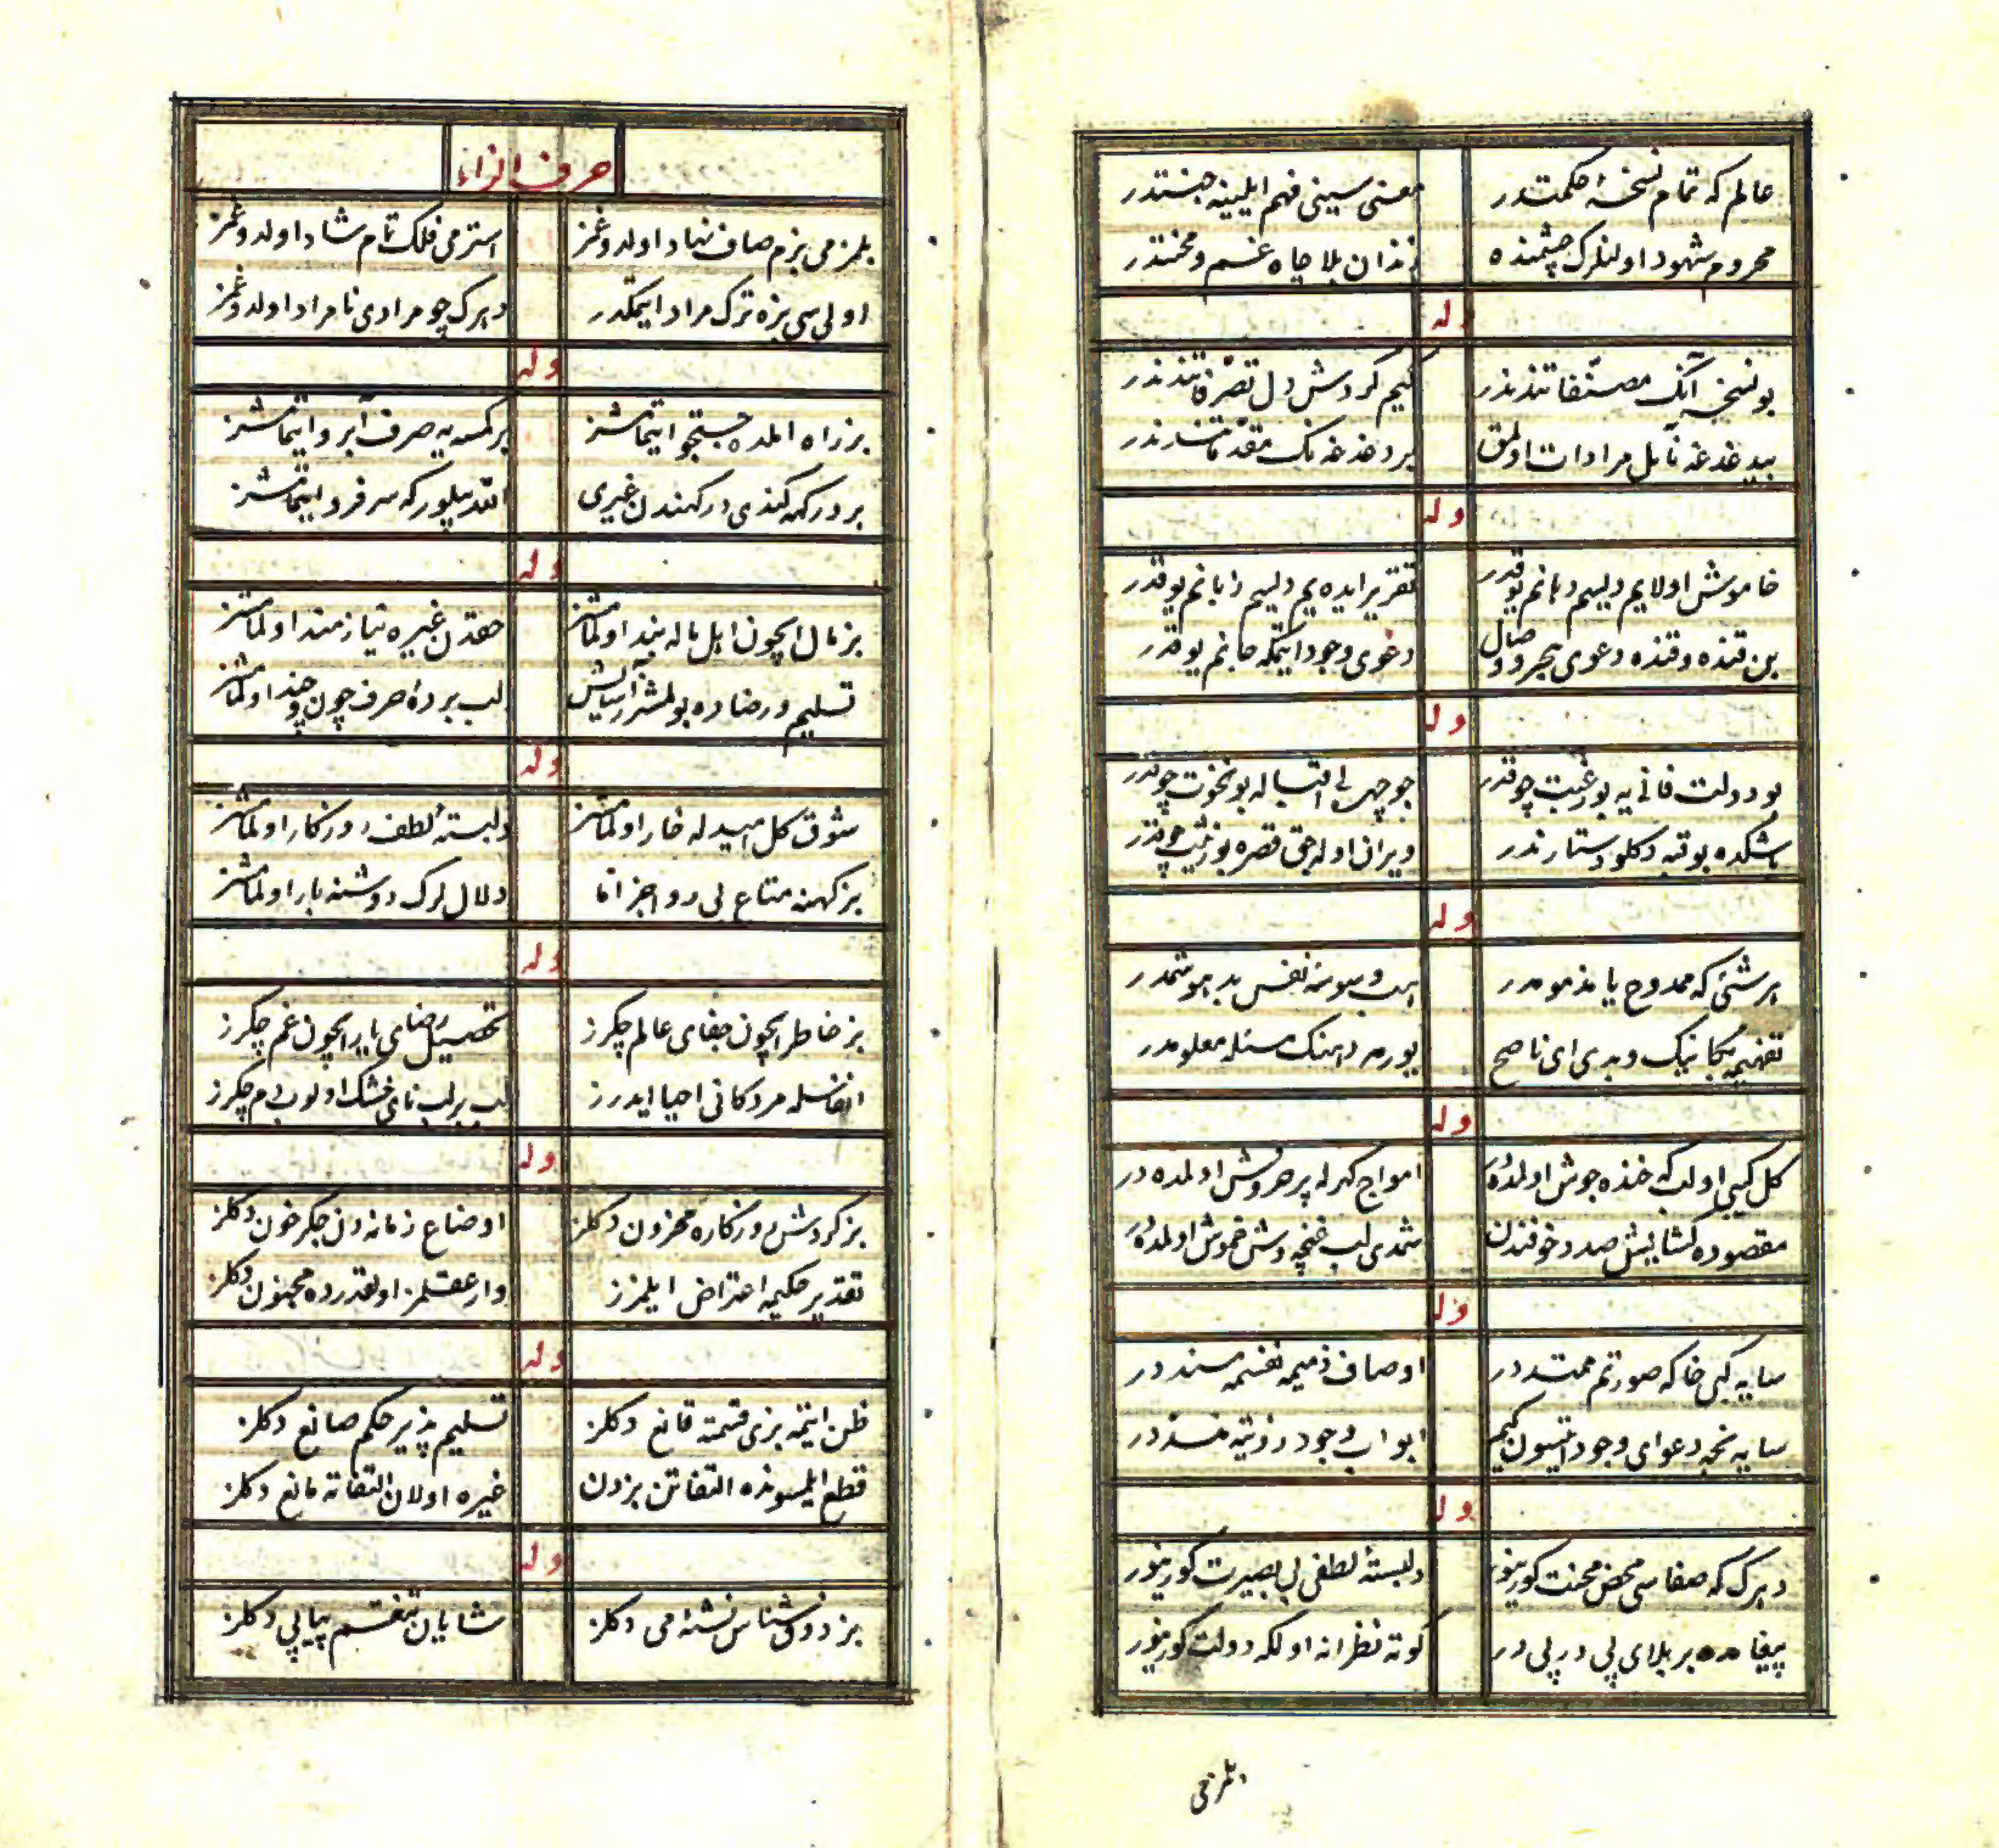 عالم که تمام نسخهٔ حکمتدر معنی‌سینی فهم ایلینه جنتدر
محروم شهود اولنلرک چشمنده زندان بلا چاه غم و محنتدر
وله
بو نسخه آنک مصنّفاتندندر کیم کردش دل تصرّفاتندندر
بیدغدغه نائل مرادات اولمق بر دغدغه نک مقدّماتندندر
وله
خاموش اولایم دلیم دهانم یوقدر تقریر ایده‌یم دلیم زبانم یوقدر
بن قنده و قنده دعوی هجر و وصال دعوی وجود ایتمکه جانم یوقدر
وله
بو دولت فانی‌یه بو رغبت چوقدر بو جهل ... اقباله بو نخوت چوقدر
باشکده بو قبه دکلو دستار ندر ویران اوله‌جق قصره بو زینت چوقدر
وله
هر شئی که ممدوح یا مذمومدر هب وسوسهٔ نفس بد موشمدر
تفهیمه بکا نیک و بدی ای ناصح یورمه دهنک مسئله معلومدر
وله
کل کبی او لب که خنده جوش اولمده‌در امواج کهرله پر خروش اولمده‌در
مقصوده کشایش صدد خوفندن شمدی لب غنچه‌وش خموش اولمده‌در
وله
سایه کبی خاکه صورتم ممتددر اوصاف ذمیمه نفسمه مسنددر
سایه نجه دعوای وجود ایتسون کیم ابواب وجود رزیته منسددر
وله
دهرک که صفاسی محض محنت کورینور دلبستهٔ لطفی بی بصیرت کورینور
پیغامده بر بلای پی در پی در کوته نظرانه اولکه دولت کورینور
بلمزمی
حرف الزاء
بلمزمی بزم صاف نهاد اولدوغمز استرمی فلک تمام شاد اولدوغمز
اولی‌سی بزه ترک مراد ایتمکدر دهرک چو مرادی نامراد اولدوغمز
وله
بز راه املده جستجو ایتمامشز هر کمسه‌یه صرف آبرو ایتمامشز
بر درکهه کندی درکهندن غیری الله بیلور که سر فرو ایتمامشز
وله
بز مال ایچون اهل ماله بند اولمامشز حقدن غیره نیازمند اولمامشز
تسلیم و رضاده بولمشز آسایش لب بردهٔ حرف چون و چند اولمامشز
وله
شوق کل امیدله خار اولمامشز دلبستهٔ لطف روزکار اولمامشز
بز کهنه متاع بی رواجز اما دلال لرک دوشنه بار اولمامشز
وله
بز خاطر ایچون جفای عالم چکرز تحصیل رضای یار ایچون غم چکرز
انفاسله مردکانی احیا ایدرز لب بر لب نای خشک اولوب دم چکرز
وله
بز کردش روزکاره محزون دکلز اوضاع زمانه‌دن جکر خون دکلز
تقدیر حکیمه اعتراض ایلمزز وار عقلمز اولقدرده مجنون دکلز
وله
ظن ایتمه بزی قسمته قانع دکلز تسلیم پذیر حکم صانع دکلز
قطع ایلسونده التفاتن بزدن غیره اولان التفاته مانع دکلز
وله
بز ذوق شناس نشئهٔ می دکلز شایان تنعّم پیاپی دکلز